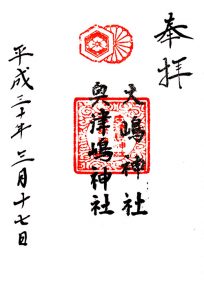 奉拝
大嶋神社
奥津嶋神社
平成三十年三月十七日